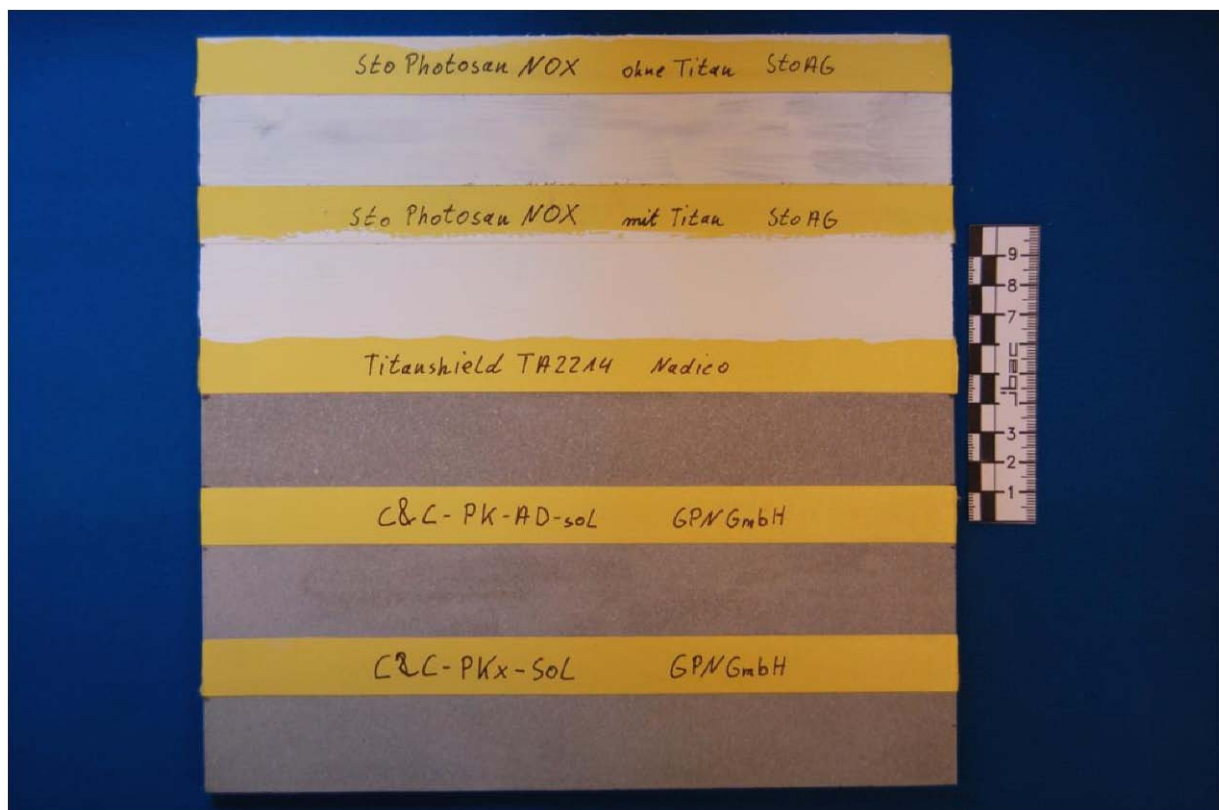 Sto Photosan NOX ohne Titan StoAG
Sto Photosan NOX mit Titan StoAG
Titanshield TA2214 Nadico
C&C-PK-AD-soL GPN GmbH
C&C-PKx-SoL GPN GmbH
9
8
7
jbac
3
2
1